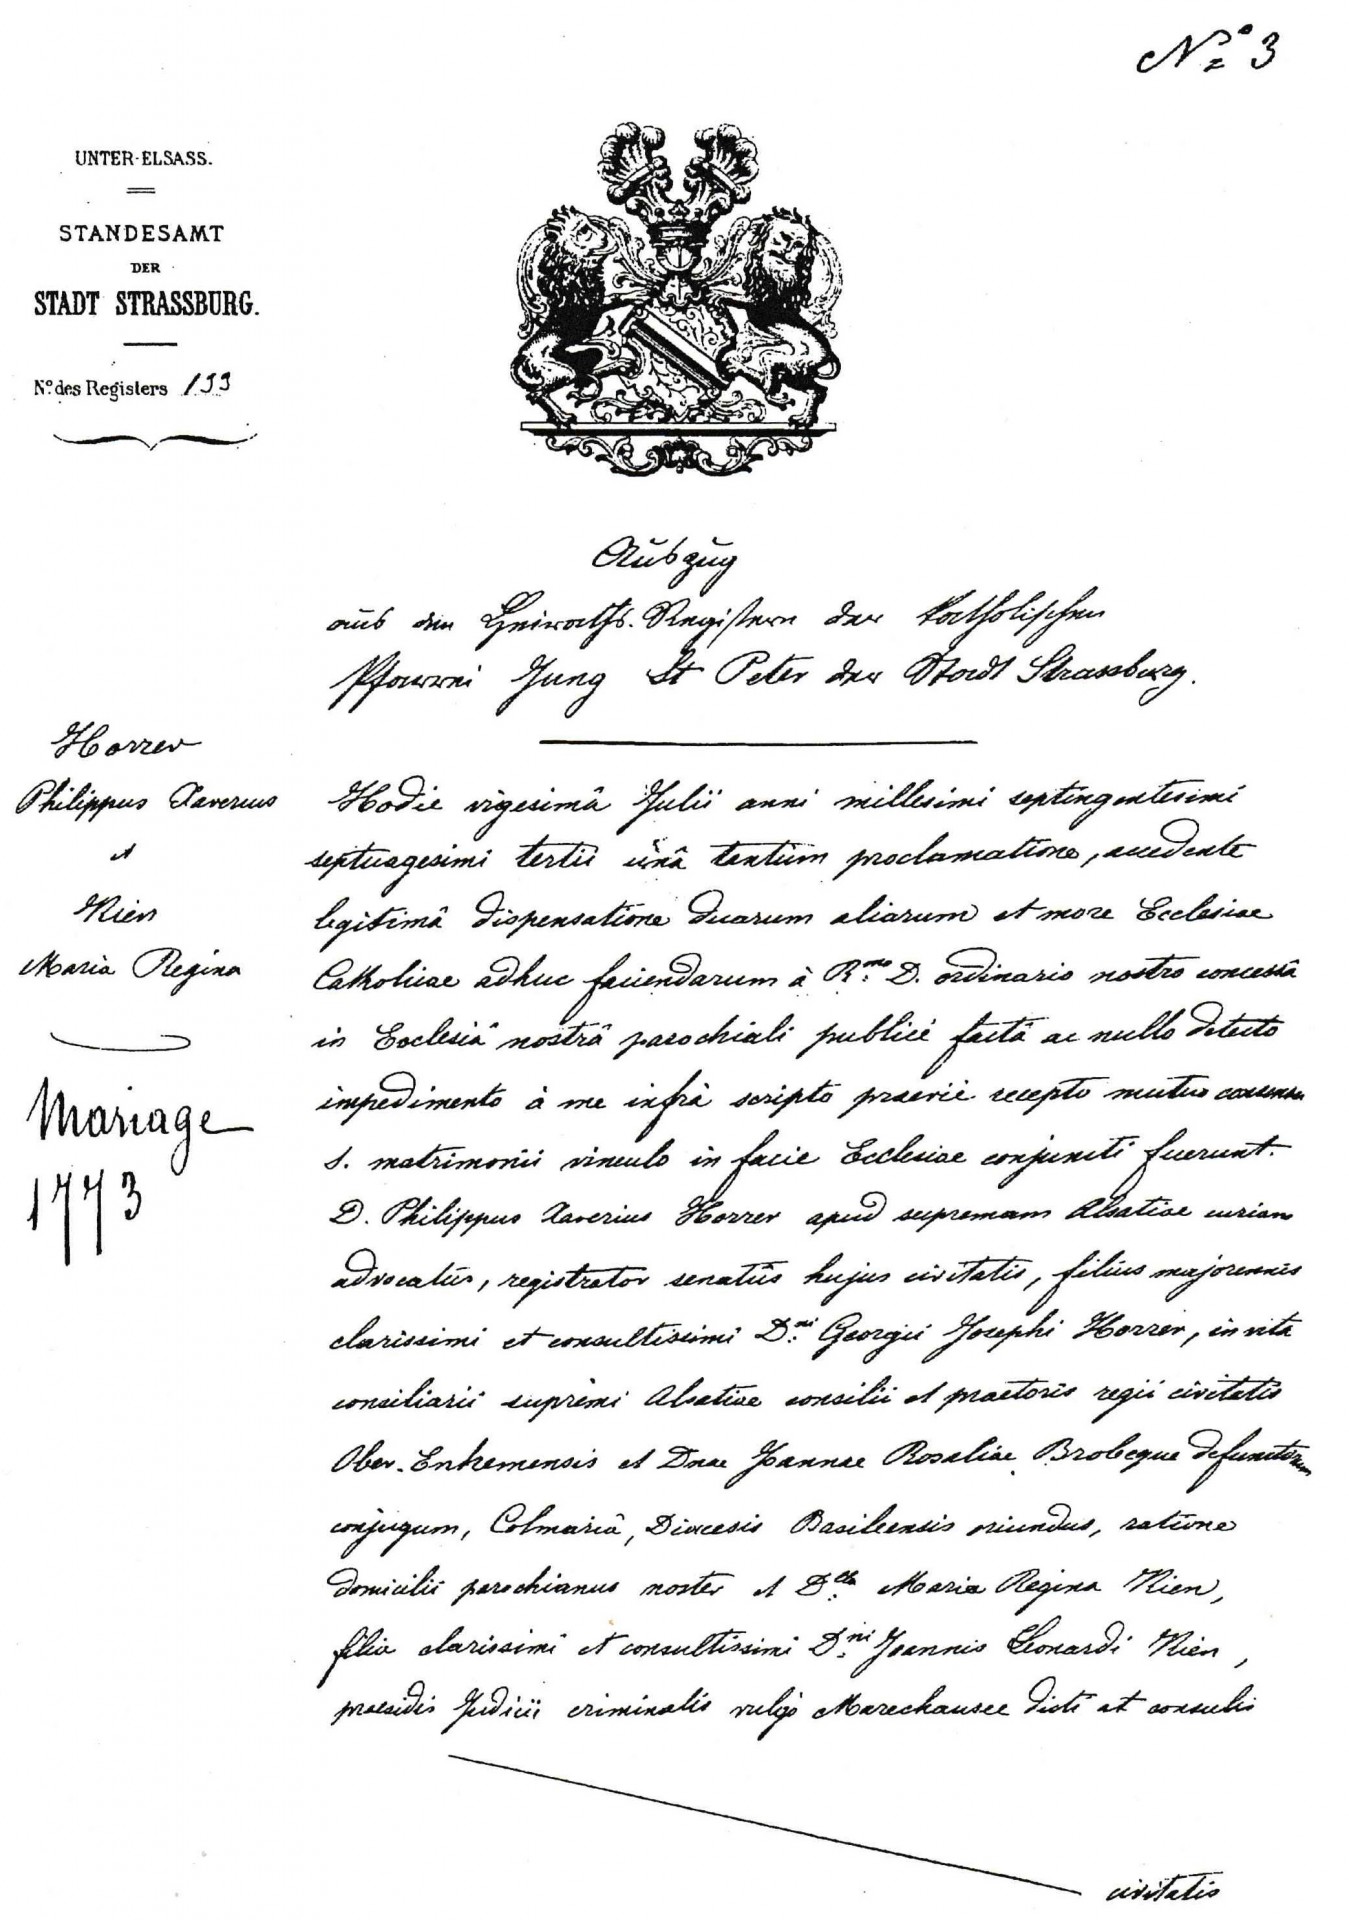 Nº 3
UNTER-ELSASS.
STANDESAMT
DER
STADT STRASSBURG.
Nº des Registers 133
Auszug
aus den Heiraths-Registern der katholischen
Pfarrei Jung St Peter der Stadt Strassburg.
Horrer
Philippus Xaverius
et
Kien
Maria Regina
Mariage
1773
Hodie vigesimâ Julii anni millesimi septingentesimi
septuagesimi tertii unâ tantum proclamatione, accedente
legitimâ dispensatione duarum aliarum et more Ecclesiae
Catholicae adhuc faciendarum à R.mo D. ordinario nostro concessâ
in Ecclesiâ nostrâ parochiali publicè factâ ac nullo detecto
impedimento à me infrà scripto praeviè recepto mutuo consensu
s. matrimonii vinculo in facie Ecclesiae conjuncti fuerunt.
D. Philippus Xaverius Horrer apud supremam Alsatiae curiam
advocatus, registrator senatûs hujus civitatis, filius majorennis
clarissimi et consultissimi D.ni Georgii Josephi Horrer, in vita
consiliarii supremi Alsatiae consilii et praetoris regii civitatis
Ober-Enhemensis et Dnae Joannae Rosaliae Brobeque defunctorum
conjugum, Colmariâ, Diocesis Basileensis oriundus, ratione
domicilii parochianus noster et D.lla Maria Regina Kien,
filia clarissimi et consultissimi D.ni Joannis Leonardi Kien,
praesidis Judicii criminalis vulgò Marechausee dicti et consulis
civitatis